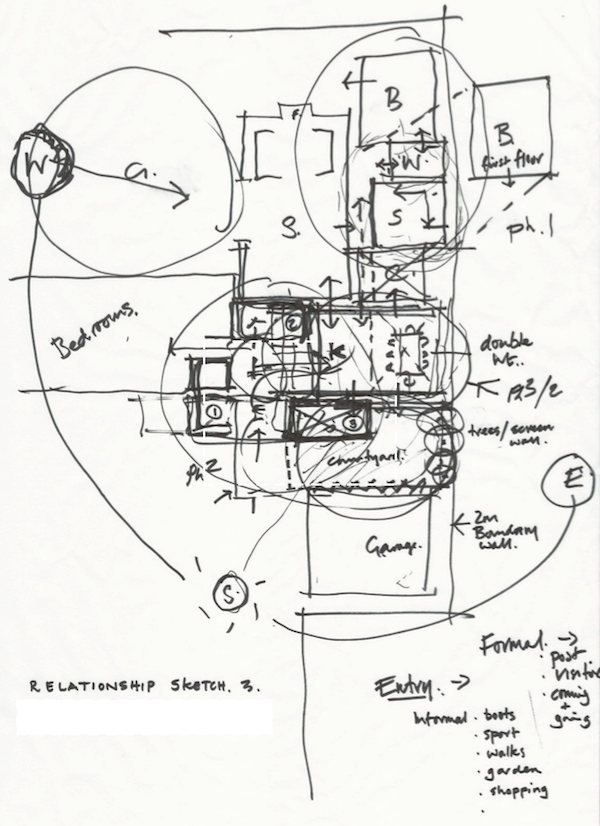 B
W
B.
first floor
W.
G.
S
ph.1
S.
Bedrooms.
2
K
double
ht..
Ph3/2
1
3
trees/screen
wall.
ph2
courtyard.
E
2m
Boundary
wall.
Garage.
S.
Formal. →
· post
· visitors
· coming
+
going
RELATIONSHIP SKETCH. 3.
Entry. →
Informal · boots
· sport
· walks
· garden
· shopping
·